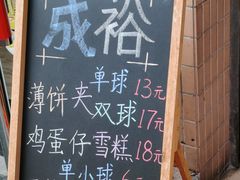 成裕
单球 13元
薄饼夹 双球 17元
鸡蛋仔雪糕 18元
单小球 6元